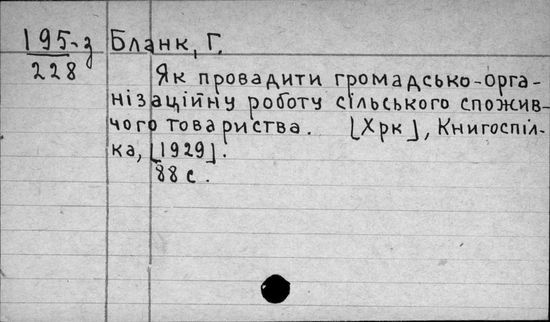 195-з
228
Бланк, Г.
Як провадити громадсько-орга-
нізаційну роботу сільського спожив-
чого товариства. [Хрк], Книгоспіл-
ка, [1929].
88 с.